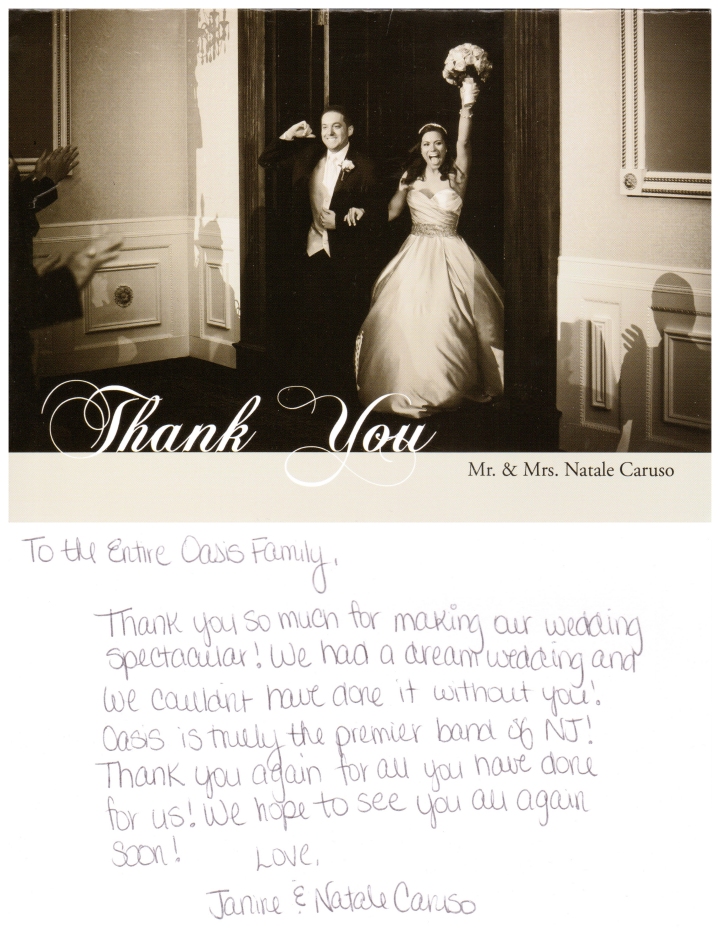 Thank You
Mr. & Mrs. Natale Caruso
To the Entire Oasis Family,
Thank you so much for making our wedding
spectacular! We had a dream wedding and
we couldn't have done it without you!
Oasis is truely the premier band of NJ!
Thank you again for all you have done
for us! We hope to see you all again
soon! Love,
Janine & Natale Caruso